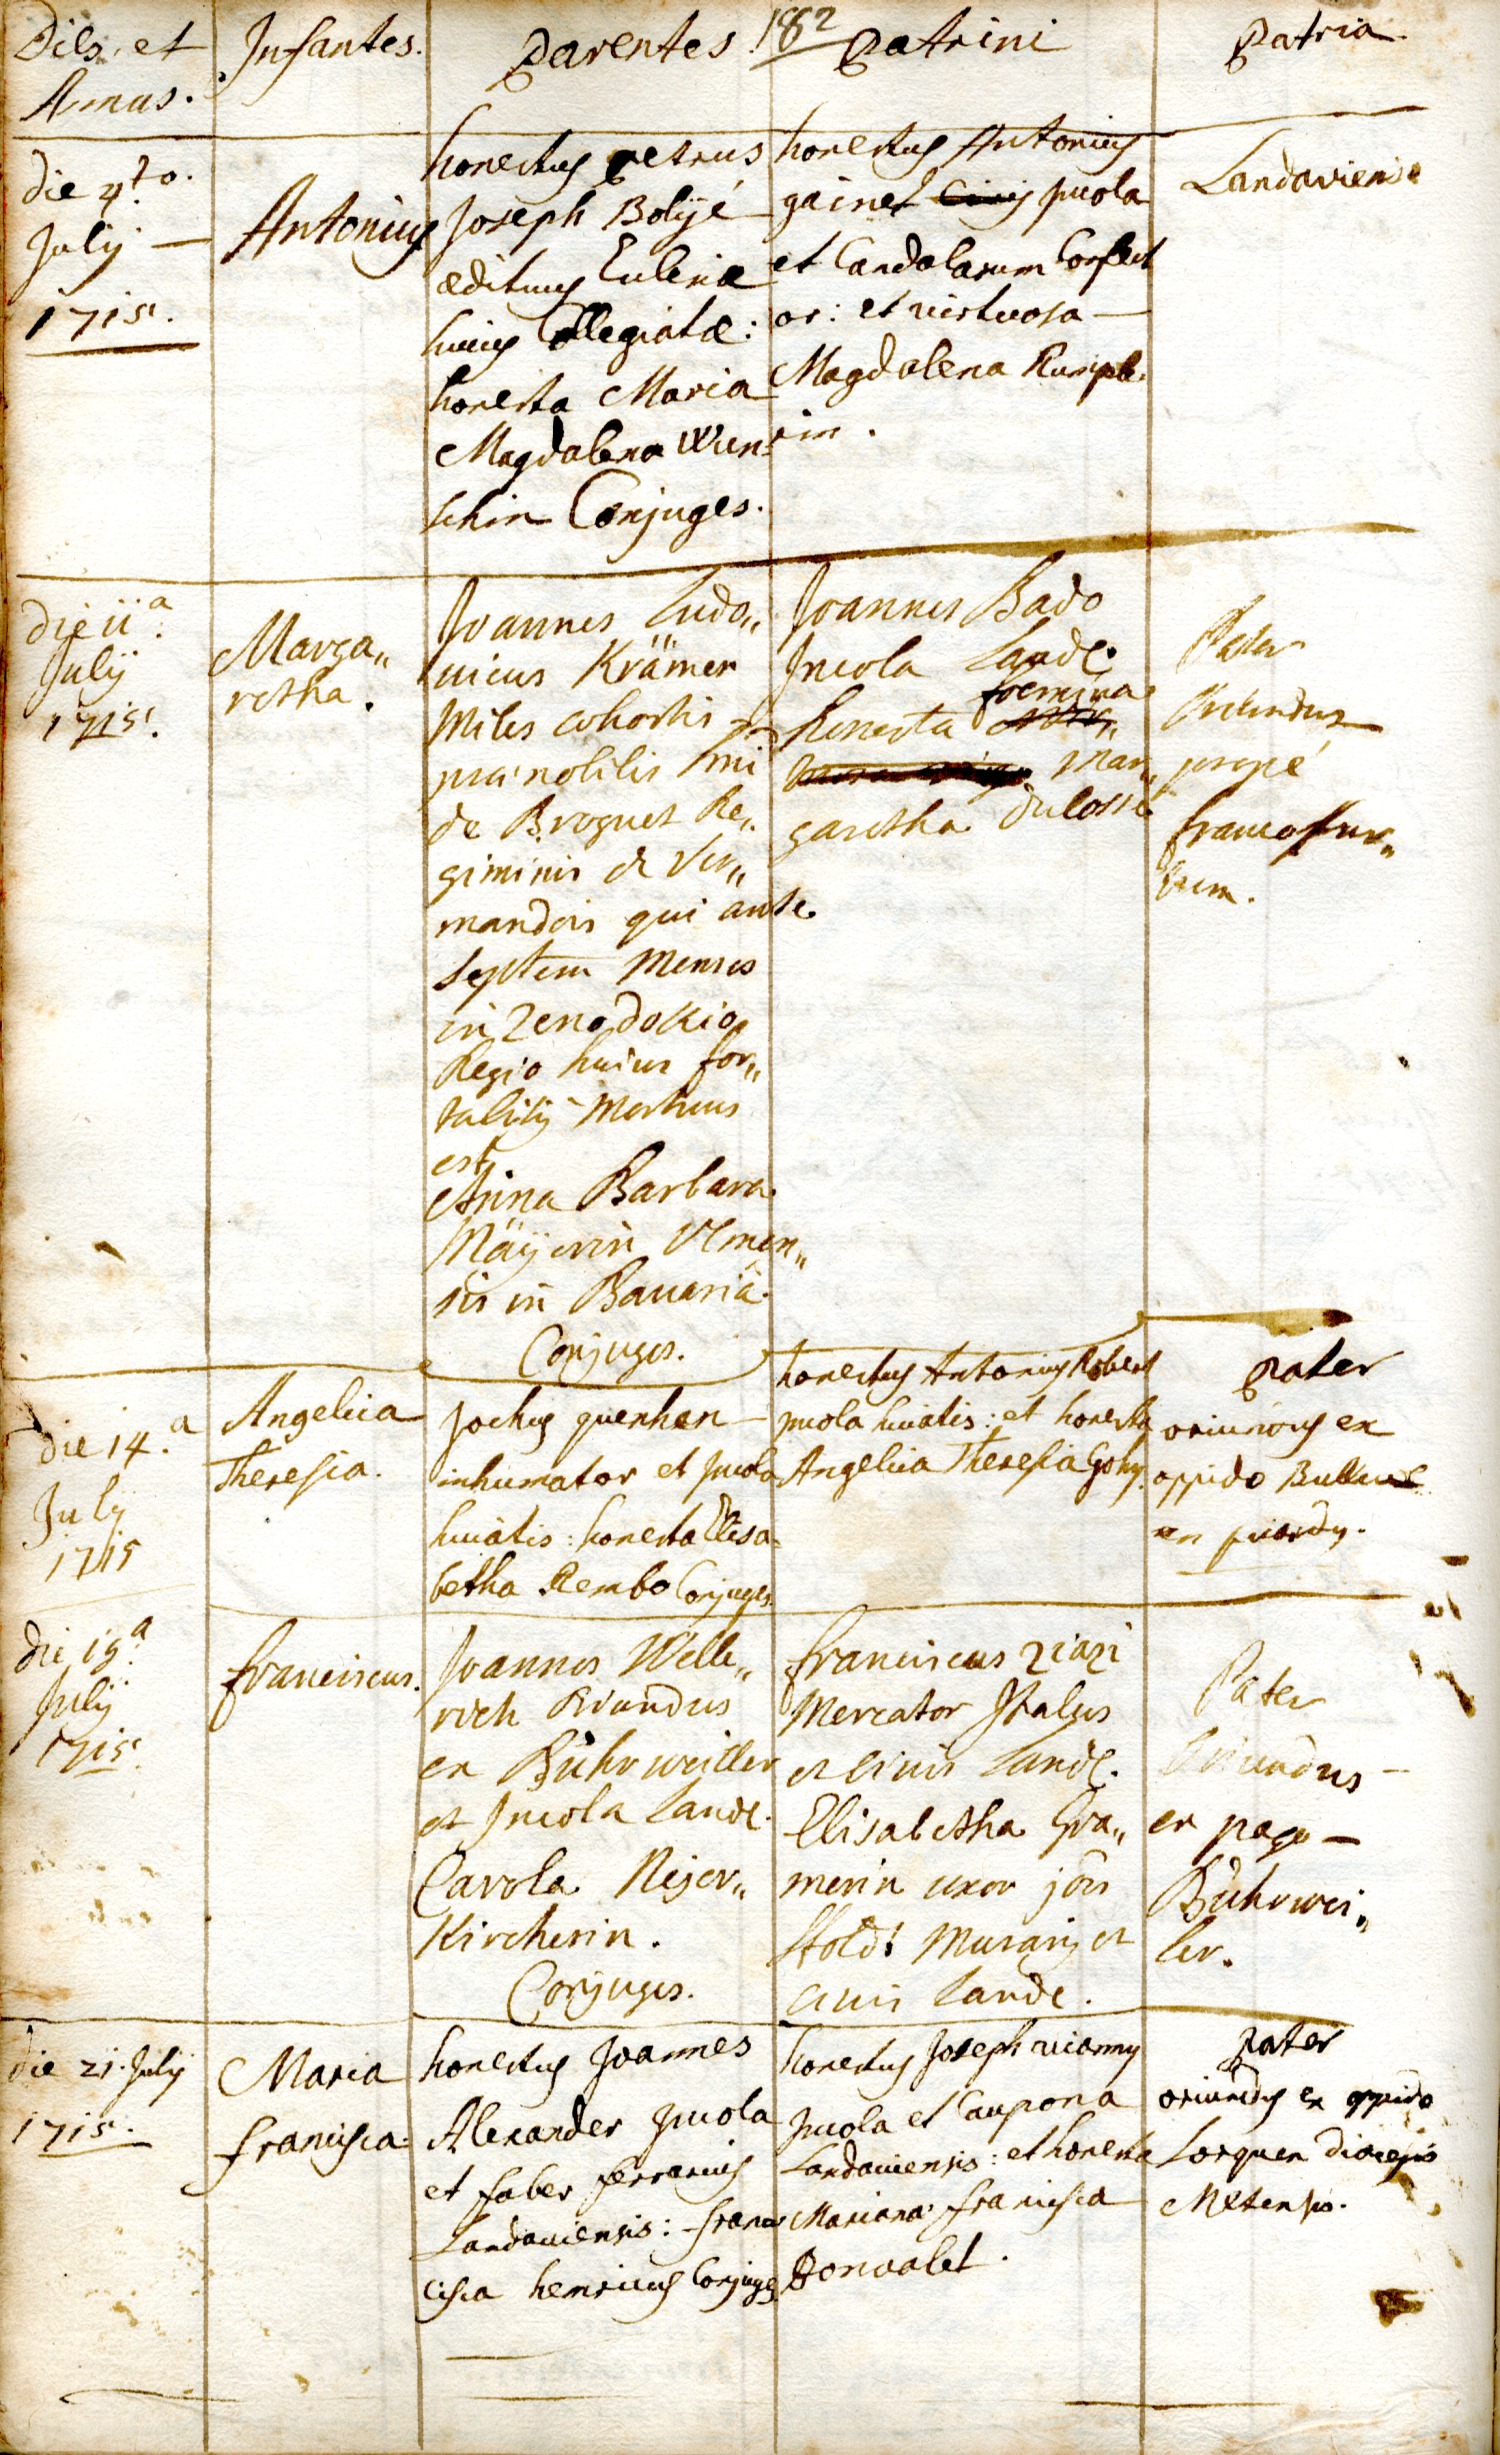 182
Dies et
Annus.
Infantes.
Parentes
Patrini
Patria.
die 4to.
July —
1715.
Antonius
honestus Petrus
Joseph Bolijé
ædituus Eclesiæ
huius Collegiatæ:
honesta Maria
Magdalena Wun=
schin Conjuges.
honestus Antonius
gainet incola
et Candelarum Confect
or: et virtuosa —
Magdalena Rumple=
rin.
Landaviense
die ii a.
July
1715.
Marga„
retha.
Joannes Ludo„
uicus Krämer
Miles cohortis
præ nobilis Dni
de Brognet Re„
giminis de Ver„
mandois qui ante
septem Menses
in Zenodokio
Regio huius for„
talitij Mortuus
est,
Anna Barbara
Mäÿerin Vlmen„
sis in Bauariâ.
Conjuges.
Joannes Bado
Incola Landc.
honesta foemina
Mar„
garetha Dulossé
Pater
Oriundus
propé
francofur„
tum.
die 14.a
July
1715
Angelica
Theresia.
Jochus quenhen —
inhumator et Incola
huiatis: honesta Elisa=
betha Rembo Conjuges.
honestus Antonius Robert
incola huiatis: et honesta
Angelica Theresia Gohy.
Pater
oriundus ex
oppido
en picardy.
die 19.a
July
1715.
franciscus.
Joannes Welle„
rich Oriundus
ex Bùhrweiller
et Incola Landc.
Carola Nejer„
Kircherin.
Conjuges.
franciscus ziazi
Mercator Italus
et ciuis Landc.
Elisabetha Gra„
merin uxor jois
Hold: Murarij et
ciuis Landc.
Pater
Oriundus —
ex pago —
Bùhrwei„
ler.
die 21. July
1715.
Maria
francisca.
honestus Joannes
Alexander Incola
et faber ferrarius
Landauiensis: fran
cisca henricus Conjuges
honestus Joseph vianny
Incola et Caupona
Landauiensis: et honesta
Mariana francisca
Bonvalet.
Pater
oriundus ex oppido
Lorquen diocesis
Metensis.